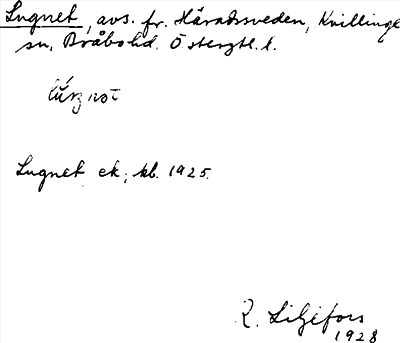 Lugnet, avs. fr. Häradssveden, Kvillinge
sn, Bråbohd. Östergtl. l.
Lugnet ek; kb. 1925.
R. Liljefors
1928